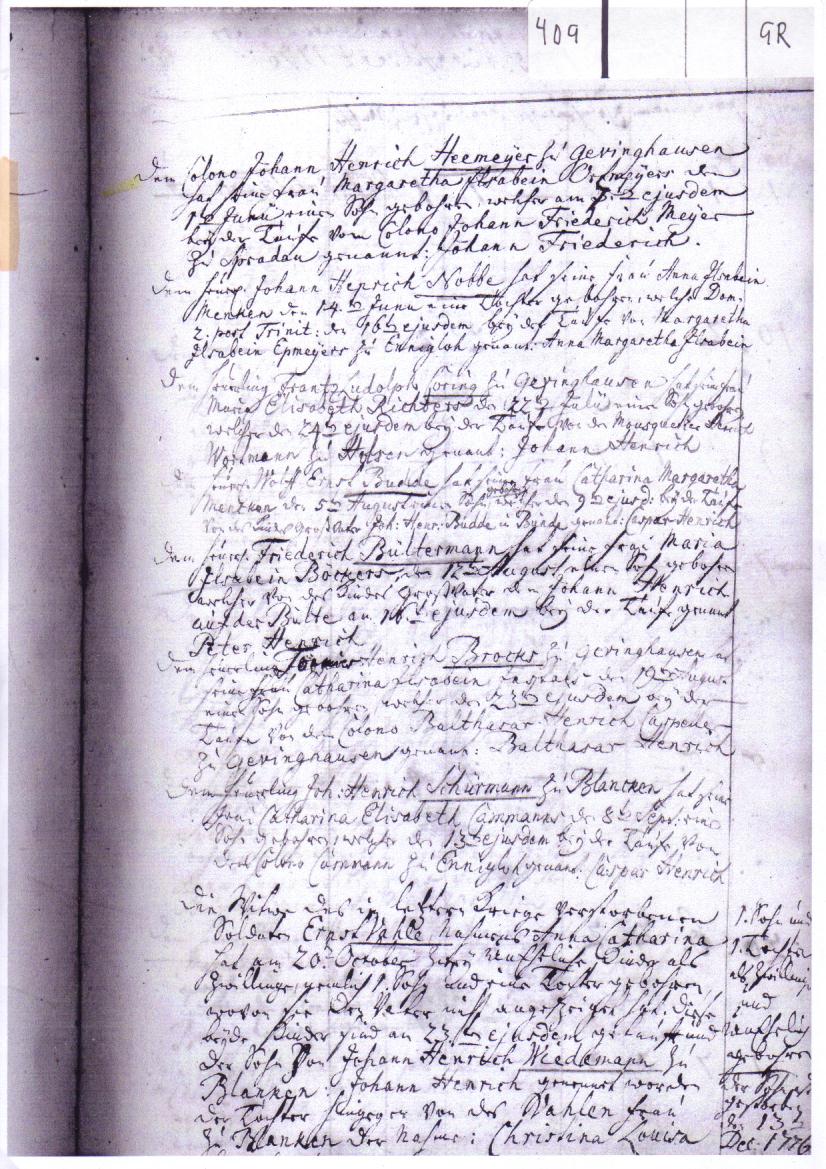 409
GR
Dem Colono Johann Henrich Heemeyer zu Gevinghausen
hat seine Frau Margaretha Ilsabein Ostmeyers den
Junii einen Sohn gebohren, welcher am ejusdem
bey der Taufe vom Colono Johann Friederich Meyer
zu Spradau genannt: Johann Friederich.
Dem Heuerl. Johann Henrich Nobbe hat seine Frau Anna Ilsabein
Mencken den 14. Junii eine Tochter gebohren, welche Dom.
2. post Trinit: den 16 ejusdem bey der Taufe von Margaretha
Ilsabein Epmeyers zu Ennigloh genant: Anna Margaretha Ilsabein
Dem Heuerling Frantz Ludolph Coring zu Gevinghausen hat seine Frau
Maria Elisabeth Richters den 22 Julii einen Sohn gebohren
welcher den 24 ejusdem bey der Taufe von dem Mousquetier Henrich
Wortmann zu genant: Johann Henrich
Dem Heuerl. Wolf Ernst Budde hat seine Frau Catharina Margaretha
Mencken den 5 August einen Sohn gebohren welcher den 9 ejusd: bey der Taufe
von des Kindes Großvater Joh: Henr: Budde in Bünde genant: Caspar Henrich
Dem Heuerl. Friederich Bültermann hat seine Frau Maria
Ilsabein Böckers den 12 August einen Sohn gebohren
welcher von des Kindes Großvater dem Johann Henrich
auf der Bülte am 16 ejusdem bey der Taufe genant
Peter Henrich
Dem Heuerling Toenies Henrich Brocks zu Gevinghausen hat
seine Frau Catharina Ilsabein den 19 August
einen Sohn gebohren, welcher den 23 ejusdem bey der
Taufe von dem Colono Balthasar Henrich
zu Gevinghausen genant: Balthasar Henrich
Dem Heuerling Joh: Henrich Schürmann zu Blancken hat seine
Frau Catharina Elisabeth Cammanns den 8 Sept: einen
Sohn gebohren, welcher den 13 ejusdem bey der Taufe von
dem Colono Cammann zu Ennigloh genant: Caspar Henrich
Die Witwe des im letzten Kriege verstorbenen
Soldaten Ernst Vahle Nahmens Anna Catharina
hat am 20. October zwey uneheliche Kinder als
Zwillinge, nemlich 1. Sohn und eine Tochter gebohren,
wovon sie den Vater nicht angezeiget hat; diese
beyde Kinder sind am 23 ejusdem getauft und
der Sohn von Johann Henrich Wiedemann zu
Blanken: Johann Henrich genennet worden
der Tochter hingegen von des Vahlen Frau
zu Blanken der Nahme: Christina Louisa
1. Sohn und
1. Tochter
als Zwillinge
und
unehelich
gebohren
der Sohn ist
gestorben
den 13
Dec. 1776